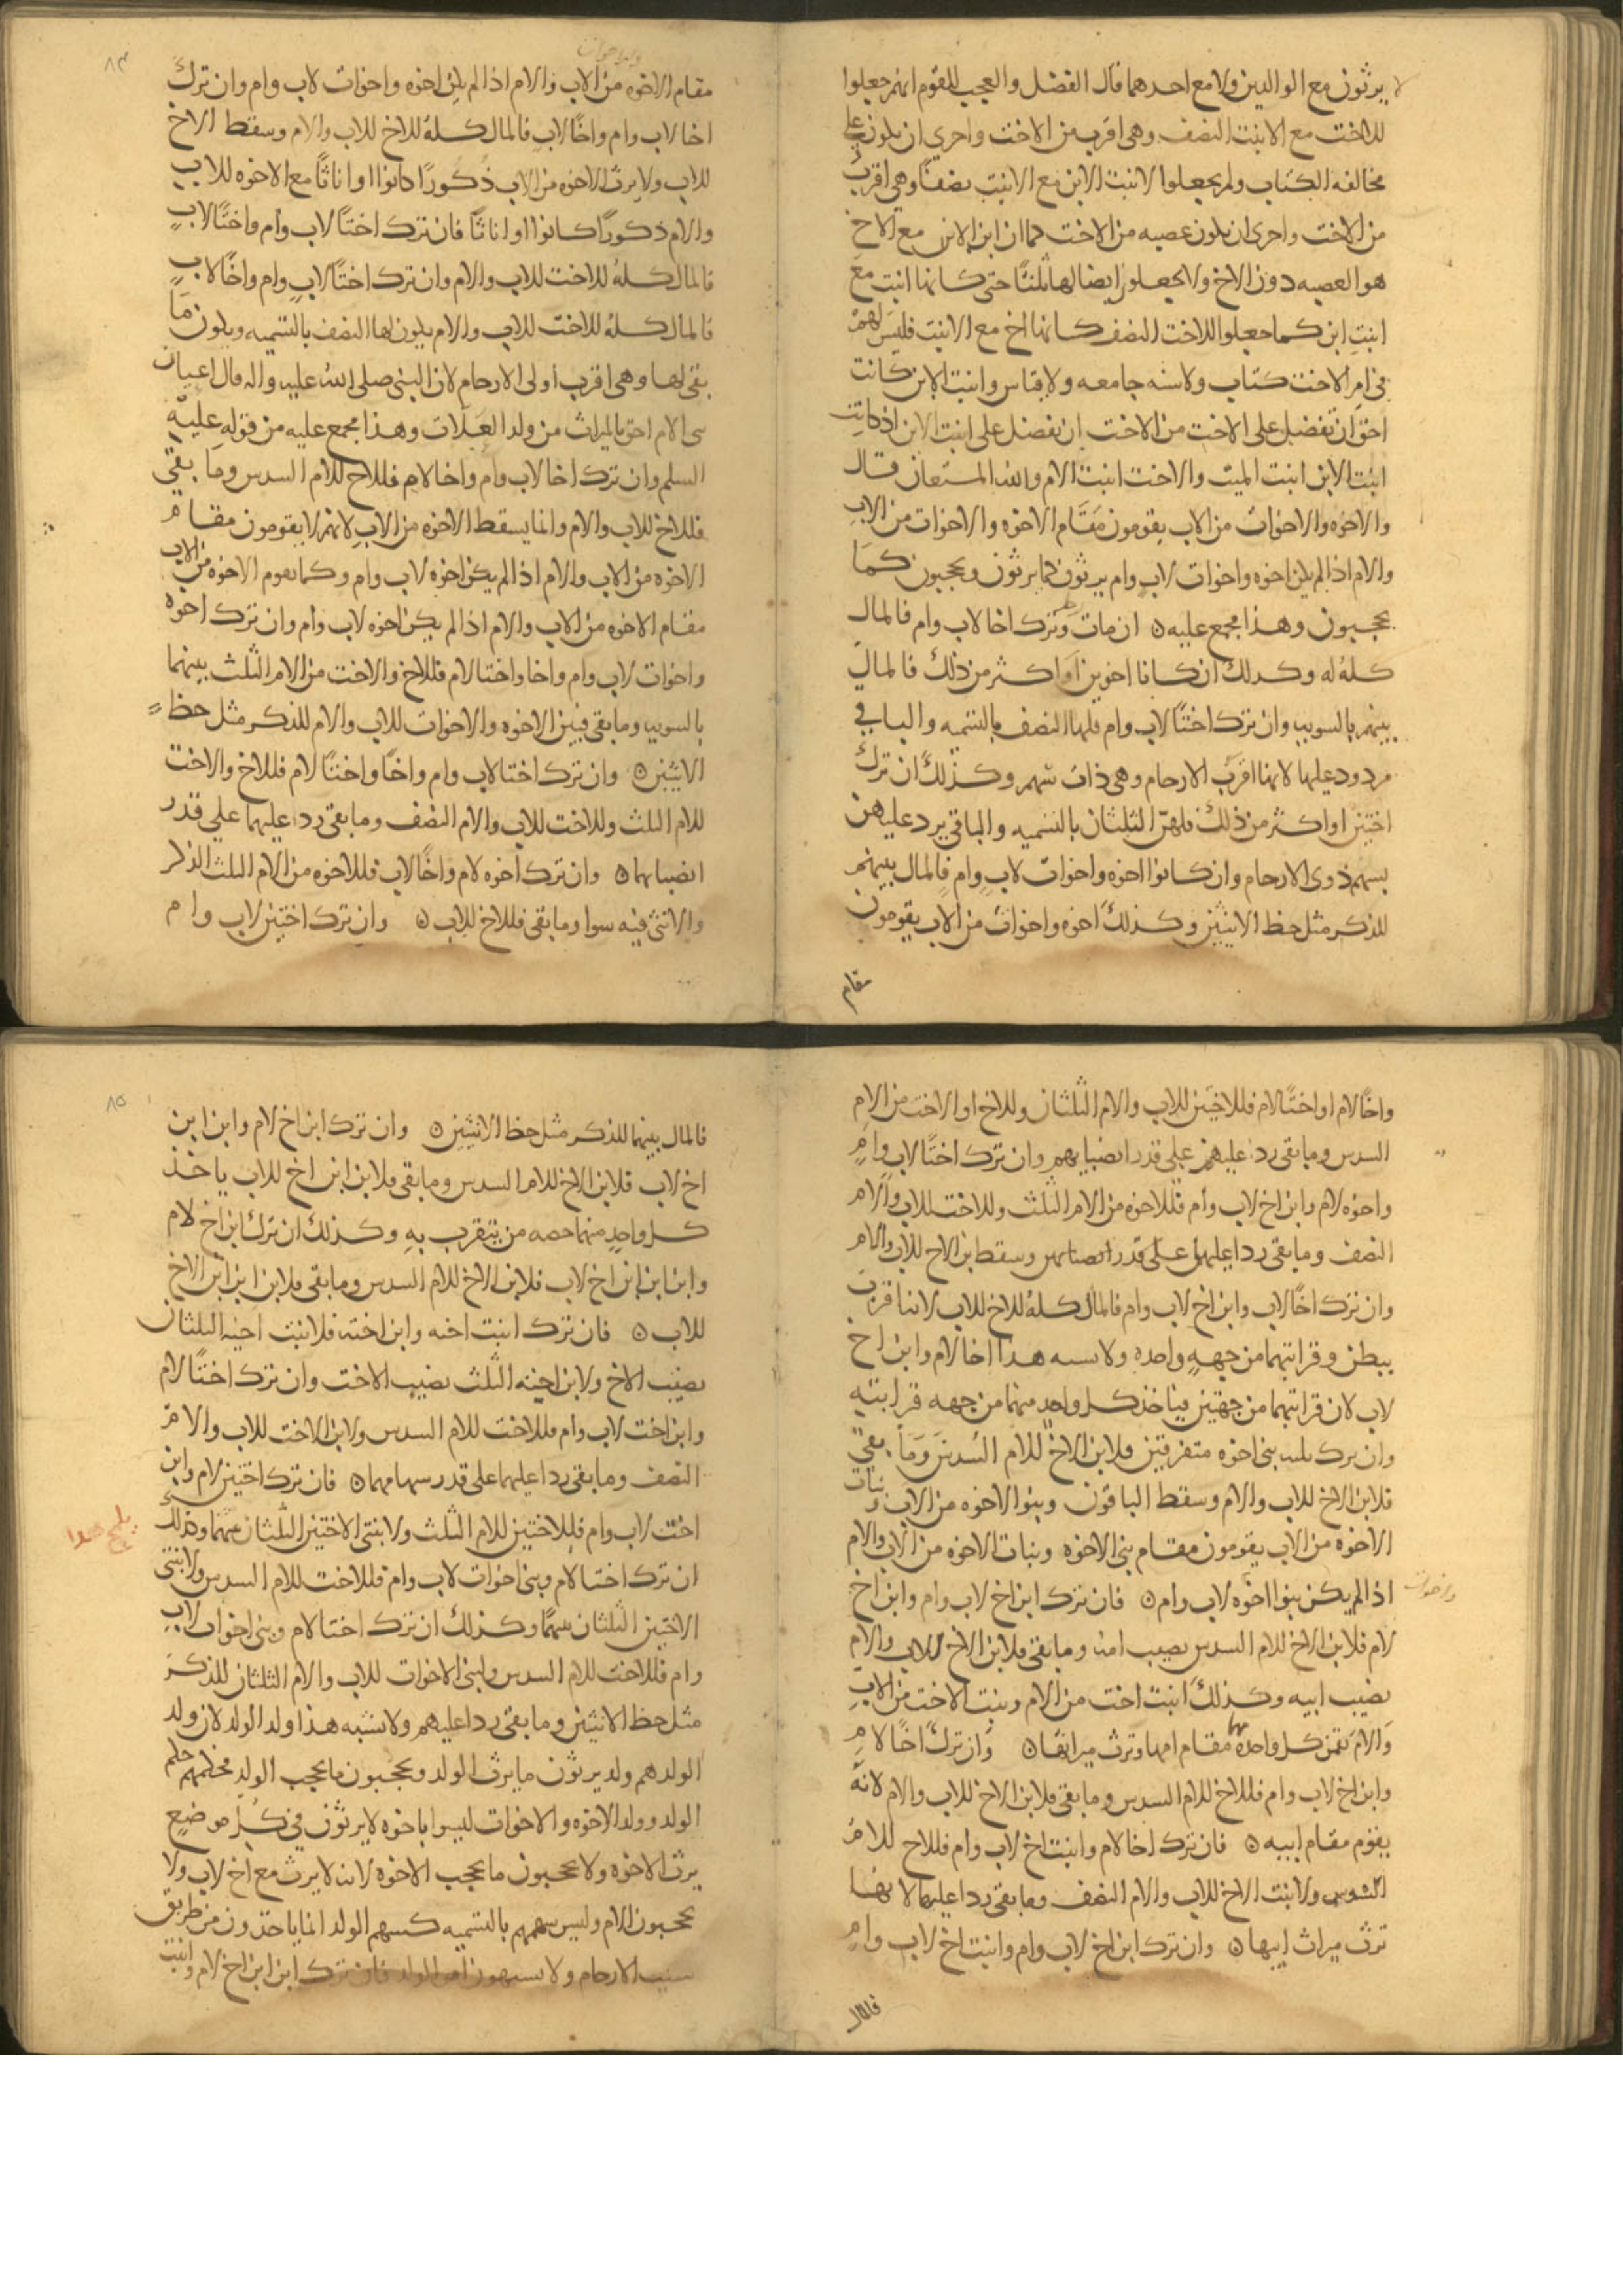 لا يرثون مع الوالدين ولا مع احدهما قال الفضل والعجب للقوم انهم جعلوا
للاخت مع الابنت النصف وهى اقرب من الاخت واحرى ان يكون على
مخالفه الكتاب ولم يجعلوا لابنت الابن مع الابنت نصفًا وهى اقرب
من الاخت واحرى ان يكون عصبه من الاخت كما ان ابن الابن مع الاخ
هو العصبه دون الاخ ولا يجعلون ايضا لها ثلثًا حتى كانها ابنت مع
ابنت ابن كما جعلوا للاخت النصف كانها اخ مع الابنت فليس لهم
فى امر الاخت كتاب ولا سنه جامعه ولا قياس وابنت الابن كانت
احق ان تفضل على الاخت من الاخت ان تفضل على ابنت الابن اذ كانت
ابنت الابن ابنت الميت والاخت ابنت الام والله المستعان قال
والاخوه والاخوات من الاب يقومون مقام الاخوه والاخوات من الاب
والام اذا لم يكن اخوه واخوات لاب وام يرثون كما يرثون ويحجبون كما
يحجبون وهذا مجمع عليه ان مات رجل وترك اخا لاب وام فالمال
كله له وكدلك ان كانا اخوين او اكثر من ذلك فالمال
بينهم بالسويه وان ترك اختًا لاب وام فلها النصف بالتسميه والباقي
مردود عليها لانها اقرب الارحام وهى ذات سهم وكذلك ان ترك
اختين او اكثر من ذلك فلهن الثلثان بالتسميه والباقى يرد عليهن
بسهم ذوى الارحام وان كانوا اخوه واخوات لاب وام فالمال بينهم
للذكر مثل حظ الانثيين وكذلك اخوه واخوات من الاب يقومون
مقام
٨٤
والاخوات
مقام الاخوه من الاب والام اذا لم يكن اخوه واخوات لاب وام وان ترك
اخا لاب وام واخًا لاب فالمال كله للاخ للاب والام وسقط الاخ
للاب ولا يرث الاخوه من الاب ذكورًا كانوا او اناثًا مع الاخوه للاب
والام ذكورًا كانوا او اناثًا فان ترك اختًا لاب وام واختًا لاب
فالمال كله للاخت للاب والام وان ترك اختًا لاب وام واخًا لاب
فالمال كله للاخت للاب والام يكون لها النصف بالتسميه ويكون ما
بقى لها وهى اقرب اولى الارحام لان النبى صلى الله عليه واله قال اعيان
بنى الام احق بالميراث من ولد العلات وهذا مجمع عليه من قوله عليه
السلم وان ترك اخا لاب وام واخا لام فللاخ للام السدس وما بقى
فللاخ للاب والام وانما يسقط الاخوه من الاب لانهم لا يقومون مقام
الاخوه من الاب والام اذا لم يكن اخوه لاب وام وكما يقوم الاخوه من الاب
مقام الاخوه من الاب والام اذا لم يكن اخوه لاب وام وان ترك اخوه
واخوات لاب وام واخا واختا لام فللاخ والاخت من الام الثلث بينهما
بالسويه وما بقى فبين الاخوه والاخوات للاب والام للذكر مثل حظ
الانثيين وان ترك اختا لاب وام واخًا واختًا لام فللاخ والاخت
للام الثلث وللاخت للاب والام النصف وما بقى رد عليهما على قدر
انصبائهما وان ترك اخوه لام واخًا لاب فللاخوه من الام الثلث الذكر
والانثى فيه سوا وما بقى فللاخ للاب وان ترك اختين لاب وام
واخًا لام او اختًا لام فللاختين للاب والام الثلثان وللاخ او الاخت من الام
السدس وما بقى رد عليهم على قدر انصبايهم وان ترك اختًا لاب وام
واخوه لام وابن اخ لاب وام فللاخوه من الام الثلث وللاخت للاب والام
النصف وما بقى رد عليهم على قدر انصبائهم وسقط ابن الاخ للاب والام
وان ترك اخًا لاب وابن اخ لاب وام فالمال كله للاخ للاب لانه اقرب
ببطن وقرابتهما من جهه واحده ولا يشبه هذا اخا لام وابن اخ
لاب لان قرابتهما من جهتين فياخذ كل واحد منهما من جهه قرابته
وان ترك ثلثه بنى اخوه متفرقين فلابن الاخ للام السدس وما بقى
فلابن الاخ للاب والام وسقط الباقون وبنوا الاخوه من الاب وبنات
الاخوه من الاب يقومون مقام بنى الاخوه وبنات الاخوه من الاب والام
اذا لم يكن بنوا اخوه لاب وام فان ترك ابن اخ لاب وام وابن اخ
لام فلابن الاخ للام السدس نصيب امه وما بقى فلابن الاخ للاب والام
نصيب ابيه وكذلك ابنت اخت من الام وبنت الاخت من الاب
والام تقمن كل واحده منهما مقام امها وترث ميراثها وان ترك اخًا لام
وابن اخ لاب وام فللاخ للام السدس وما بقى فلابن الاخ للاب والام لانه
يقوم مقام ابيه فان ترك اخا لام وابنت اخ لاب وام فللاخ للام
السدس ولابنت الاخ للاب والام النصف وما بقى رد عليهما لانها
ترث ميراث ابيها وان ترك ابن اخ لاب وام وابنت اخ لاب وام
واخوات
فالمال
٨٥
فالمال بينهما للذكر مثل حظ الانثيين وان ترك ابن اخ لام وابن ابن
اخ لاب فلابن الاخ للام السدس وما بقى فلابن ابن اخ للاب ياخذ
كل واحد منهما حصه من يتقرب به وكذلك ان ترك ابن اخ لام
وابن ابن ابن اخ لاب فلابن الاخ للام السدس وما بقى فلابن ابن ابن الاخ
للاب فان ترك ابنت اخيه وابن اخته فلابنت اخيه الثلثان
نصيب الاخ ولابن اخته الثلث نصيب الاخت وان ترك اختًا لام
وابن اخت لاب وام فللاخت للام السدس ولابن الاخت للاب والام
النصف وما بقى رد عليهما على قدر سهامهما فان ترك اختين لام وابن
اخت لاب وام فللاختين للام الثلث ولابنتى الاختين الثلثان بينهما وكذلك
ان ترك اختا لام وبنى اخوات لاب وام فللاخت للام السدس ولابنتى
الاختين الثلثان بينهما وكذلك ان ترك اختا لام وبنى اخوات لاب
وام فللاخت للام السدس ولبنى الاخوات للاب والام الثلثان للذكر
مثل حظ الانثيين وما بقى رد عليهم ولا يشبه هذا ولد الولد لان ولد
الولد هم ولد يرثون ما يرث الولد ويحجبون ما يحجب الولد فحكمهم حكم
الولد وولد الاخوه والاخوات ليسوا باخوه لا يرثون فى كل موضع
يرث الاخوه ولا يحجبون ما يحجب الاخوه لانه لا يرث مع اخ لاب ولا
يحجبون الام وليس سهمهم بالتسميه كسهم الولد انما ياخذون من طريق
سبب الارحام ولا يشبهون امر الولد فان ترك ابن ابن اخ لام وابنت